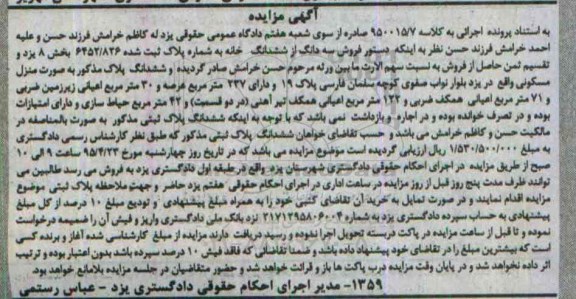 آگهی مزایده
به استناد پرونده اجرائی به کلاسه ۹۵۰۰۱۵/۷ صادره از سوی شعبه هفتم دادگاه عمومی حقوقی یزد له کاظم خرامش فرزند حسن و علیه
احمد خرامش فرزند حسن نظر به اینکه دستور فروش سه دانگ از ششدانگ خانه به شماره پلاک ثبت شده ۶۴۵۲/۸۳۶ بخش ۸ یزد و
تقسیم ثمن حاصل از فروش به نسبت سهم الارث ما بین ورثه مرحوم حسن خرامش صادر گردیده و ششدانگ پلاک مذکور به صورت منزل
مسکونی واقع در یزد بلوار نواب صفوی کوچه سلمان فارسی پلاک ۱۹ و دارای ۲۳۷ متر مربع عرصه و ۳۰ متر مربع اعیانی زیرزمین ضربی
و ۷۱ متر مربع اعیانی همکف ضربی و ۱۲۳ متر مربع اعیانی همکف تیر آهنی (در دو قسمت) و ۴۲ متر مربع حیاط سازی و دارای امتیازات
بوده و در تصرف خوانده بوده و در اجاره و بازداشت نمی باشد که با توجه به اینکه ششدانگ پلاک ثبتی مذکور به صورت بالمناصفه در
مالکیت حسن و کاظم خرامش می باشد و حسب تقاضای خواهان ششدانگ پلاک ثبتی مذکور که طبق نظر کارشناس رسمی دادگستری
به مبلغ ۱/۵۳۰/۵۰۰/۰۰۰ ریال ارزیابی گردیده است موضوع مزایده می باشد که در تاریخ روز چهارشنبه مورخ ۹۵/۴/۲۳ ساعت ۹ الی ۱۰
صبح از طریق مزایده در اجرای احکام حقوقی دادگستری شهرستان یزد واقع در طبقه اول دادگستری یزد به فروش می رسد طالبین می
توانند ظرف مدت پنج روز قبل از روز مزایده در ساعت اداری در اجرای احکام حقوقی هفتم یزد حاضر و جهت ملاحظه پلاک ثبتی موضوع
مزایده اقدام نمایند و در صورت تمایل به خرید آن تقاضای کتبی خود را به همراه مبلغ پیشنهادی و تودیع مبلغ ۱۰ درصد از کل مبلغ
پیشنهادی به حساب سپرده دادگستری یزد به شماره ۲۱۷۱۲۹۵۸۰۶۰۰۴ نزد بانک ملی دادگستری واریز و فیش آن را ضمیمه درخواست
نموده و تا قبل از ساعت مزایده در پاکت دربسته تحویل اجرا نموده و رسید دریافت دارند مزایده از مبلغ کارشناسی شده آغاز و برنده کسی
است که بیشترین مبلغ را در تقاضای خود پیشنهاد داده باشد و ضمنا تقاضائی که فاقد فیش ۱۰ درصد سپرده باشد بدون اعتبار بوده و ترتیب
اثر داده نخواهد شد و در پایان وقت مزایده درب پاکت ها باز و قرائت خواهد شد و حضور متقاضیان در جلسه مزایده بلامانع خواهد بود.
۱۳۵۹- مدیر اجرای احکام حقوقی دادگستری یزد - عباس رستمی